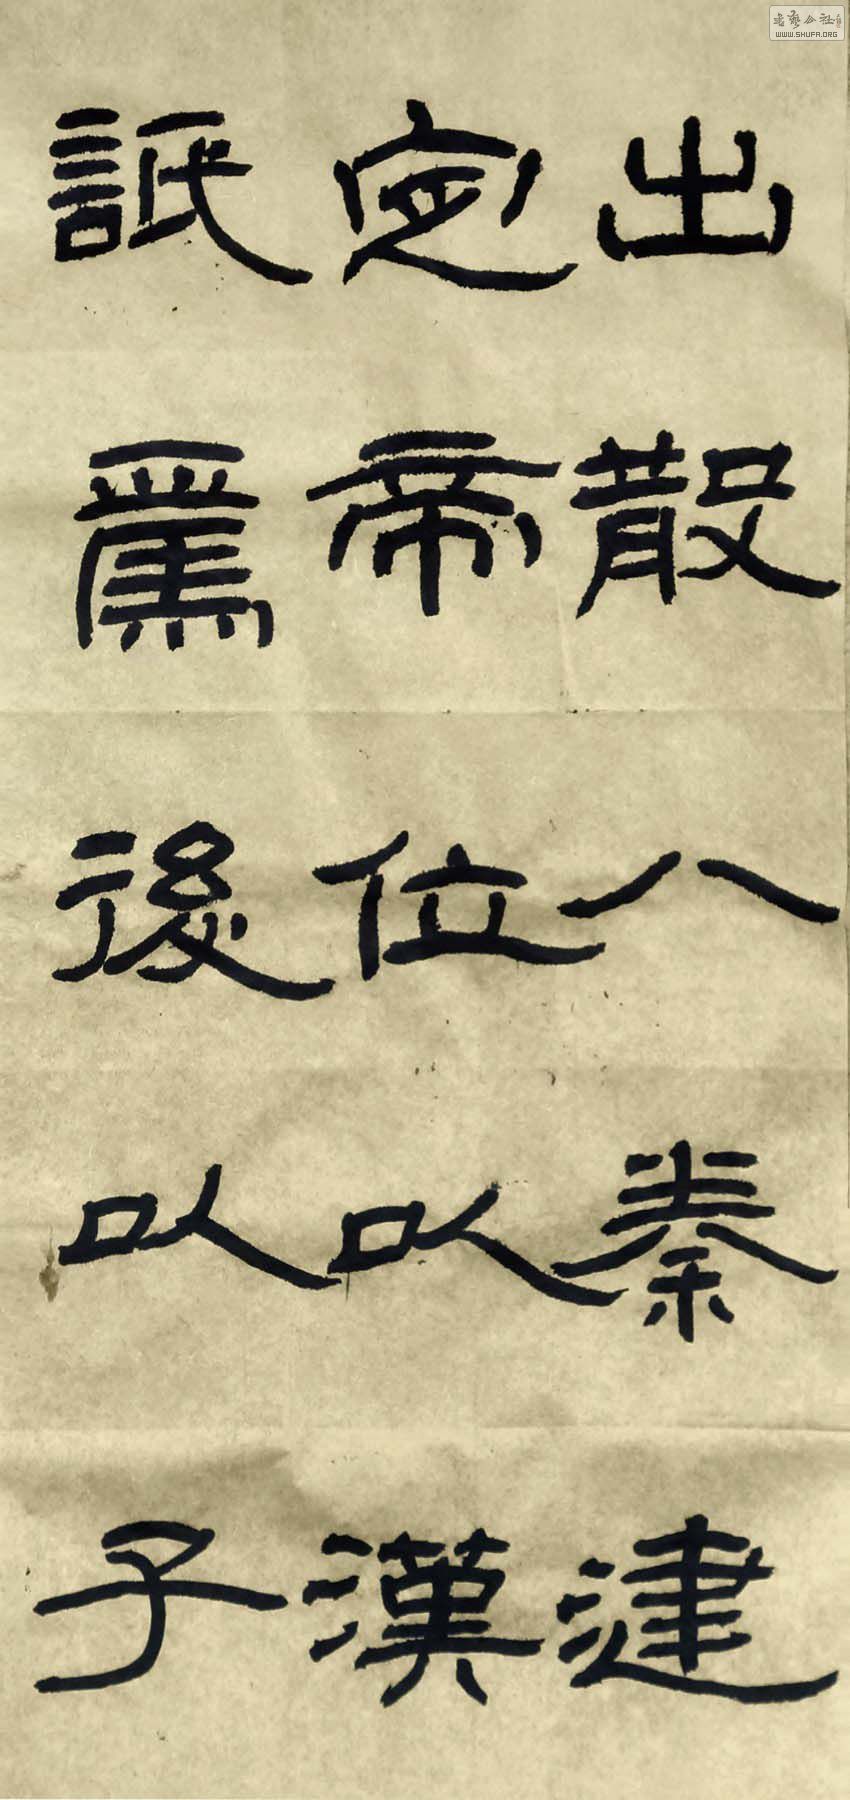 出散入秦建
定帝位以漢
詆焉後以子
書藝公社
WWW.SHUFA.ORG